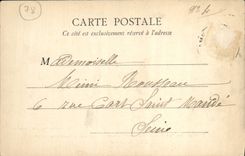 78
CARTE POSTALE
Ce côté est exclusivement réservé à l'adresse
Mademoiselle
Mimi Rousseau
6 rue Cart Saint Mandé
Seine